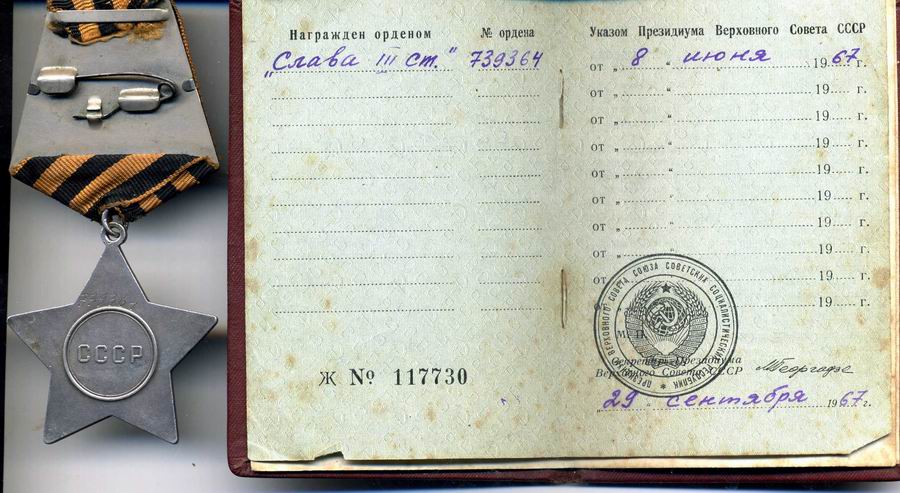 СССР
Награжден орденом № ордена
„Слава III ст.“ 739364
Ж № 117730
Указом Президиума Верховного Совета СССР
от „ 8 “ июня 1967 г.
от „ “ 19 г.
от „ “ 19 г.
от „ “ 19 г.
от „ “ 19 г.
от „ “ 19 г.
от „ “ 19 г.
от „ “ 19 г.
от „ “ 19 г.
от „ “ 19 г.
ПРЕЗИДИУМ ВЕРХОВНОГО СОВЕТА СОЮЗА СОВЕТСКИХ СОЦИАЛИСТИЧЕСКИХ РЕСПУБЛИК
М. П.
Секретарь Президиума
Верховного Совета СССР МГеоргадзе
„29 “ сентября 1967 г.